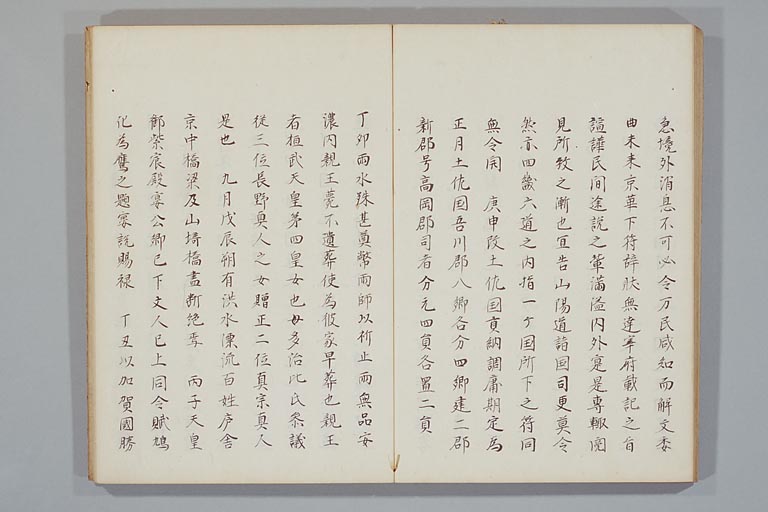 急境外消息不可必令万民咸知而解文委
曲未来京華下符辞状無達宰府載記之旨
諠譁民間途説之輩満溢内外寔是専輙閲
見所致之漸也宜告山陽道諸国司更莫令
然亦四畿六道之内指一ヶ国所下之符同
無令開　庚申改土佐国貢納調庸期定為
正月土佐国吾川郡八郷各分四郷建二郡
新郡号高岡郡司者分元四員各置二員
丁卯雨水殊甚奠幣雨師以祈止雨無品安
濃内親王薨不遣葬使為彼家早葬也親王
者桓武天皇第四皇女也母多治比氏参議
従三位長野真人之女贈正二位真宗真人
是也　九月戊辰朔有洪水漂流百姓庐舎
京中橋梁及山埼橋盡断絶焉　丙子天皇
御紫宸殿宴公卿已下文人已上同令賦鳩
化為鷹之題宴訖賜禄　丁丑以加賀國勝